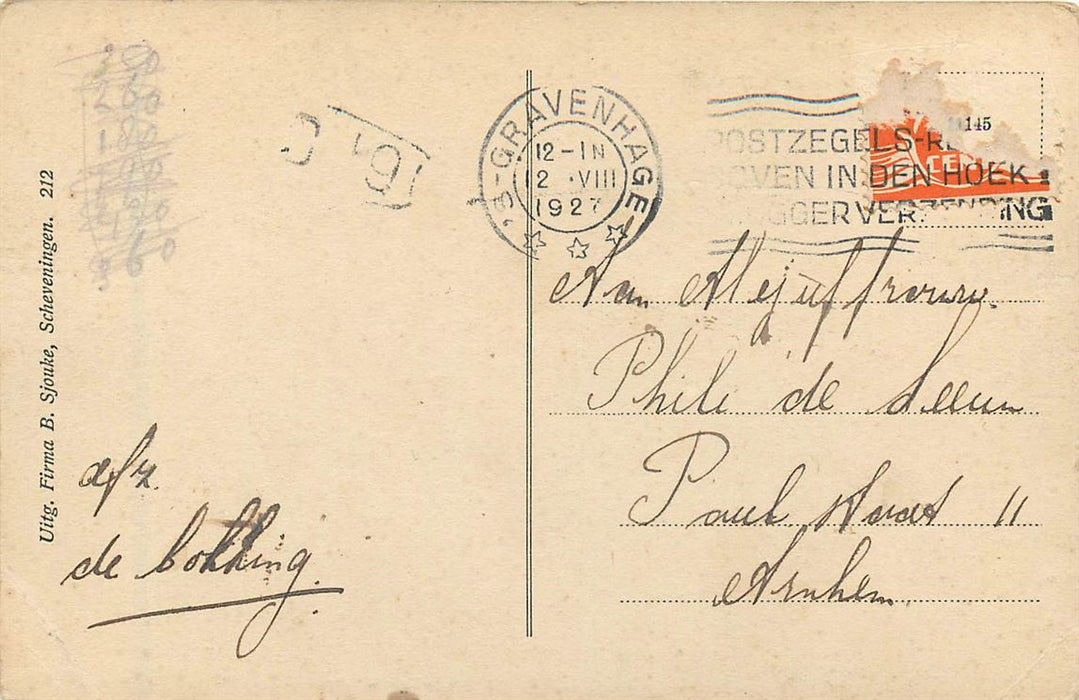 Uitg. Firma B. Sjouke, Scheveningen. 212
'S-GRAVENHAGE
12-1N
12 .VIII
1927
145
POSTZEGELS-RE
BOVEN IN DEN HOEK
VLUGGER VERZENDING
CE
Aan Mejuffrouw.
Phili de Leeuw
Paul 11
Arnhem.
afz.
de bokking.